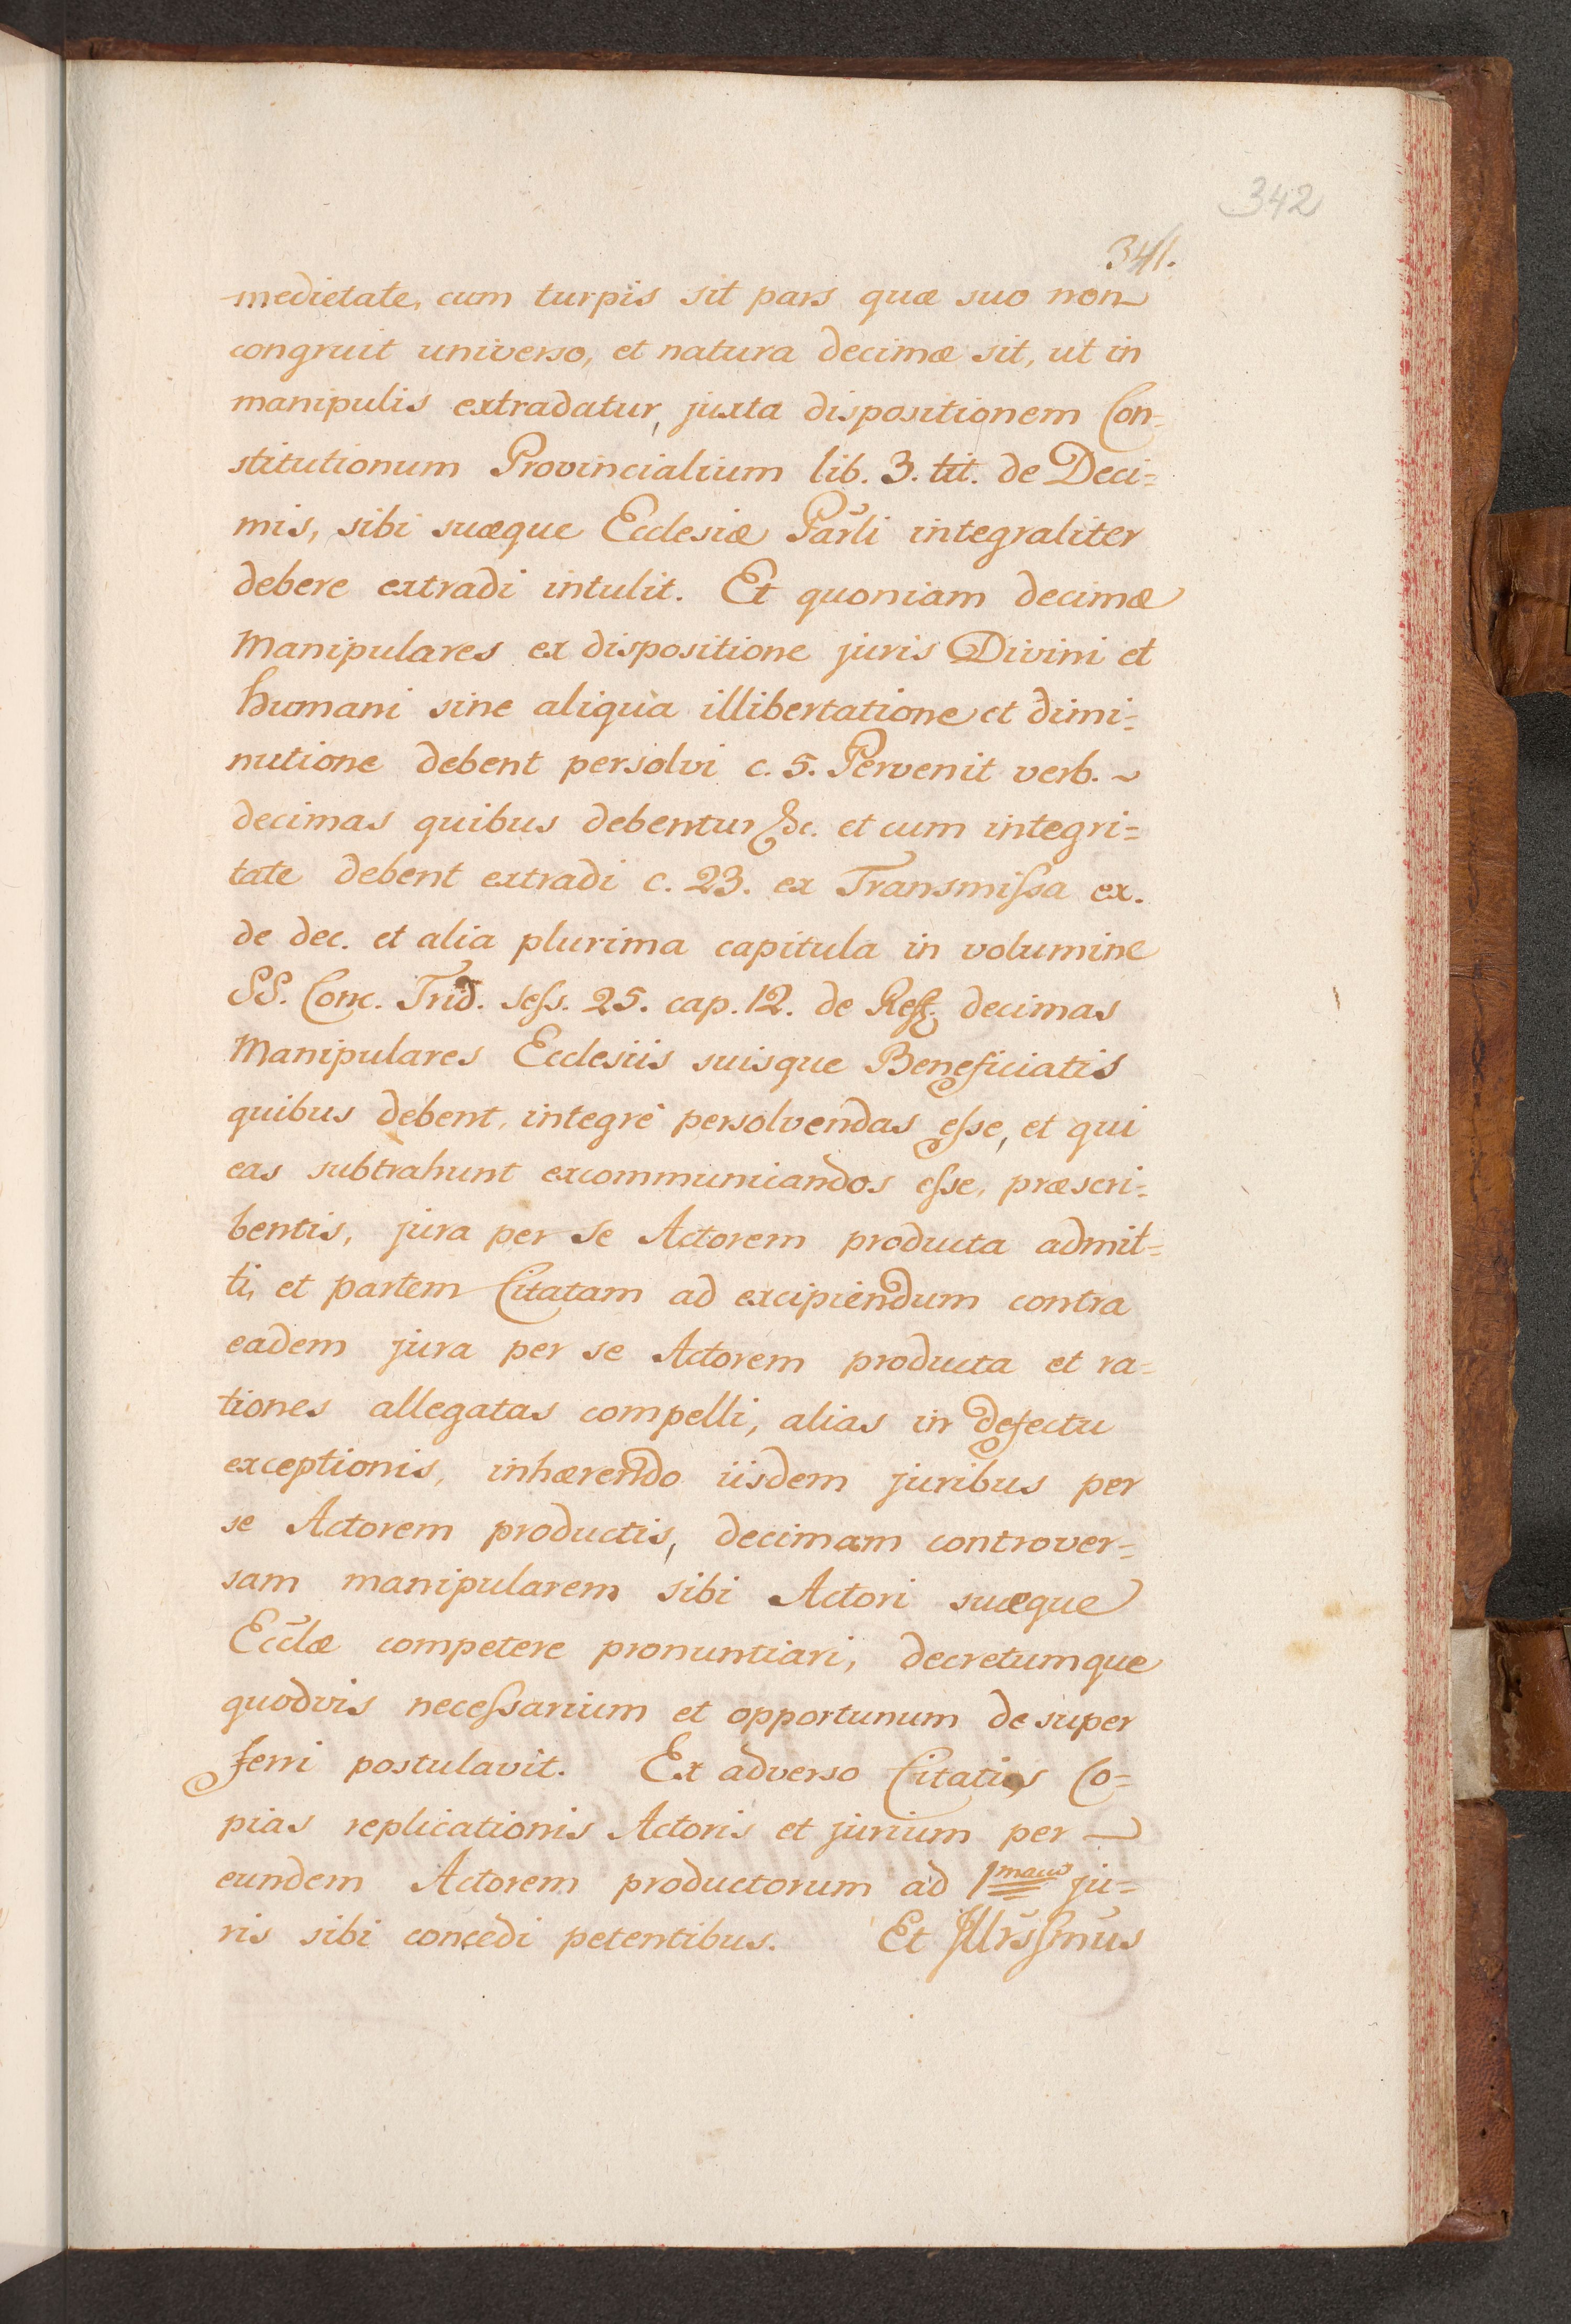 342
341.
medietate, cum turpis sit pars quæ suo non
congruit universo, et natura decimæ sit, ut in
manipulis extradatur, juxta dispositionem Con=
stitutionum Provincialium lib. 3. tit. de Deci=
mis, sibi suæque Ecclesiæ Parl̄i integraliter
debere extradi intulit. Et quoniam decimæ
Manipulares ex dispositione juris Divini et
humani sine aliqua illibertatione et dimi=
nutione debent persolvi c. 5. Pervenit verb. ~
decimas quibus debentur &c. et cum integri=
tate debent extradi c. 23. ex Transmiſsa ex.
de dec. et alia plurima capitula in volumine
SS. Conc. Trid. seſs. 25. cap. 12. de Reff. decimas
Manipulares Ecclesiis suisque Beneficiatis
quibus debent, integrè persolvendas eſse, et qui
eas subtrahunt excommunicandos eſse, præscri=
bentis, jura per se Actorem producta admit=
ti, et partem Citatam ad excipiendum contra
eadem jura per se Actorem producta et ra=
tiones allegatas compelli, alias in defectu
exceptionis, inhærendo iisdem juribus per
se Actorem productis, decimam controver=
sam manipularem sibi Actori suæque
Eccl̄æ competere pronuntiari, decretumque
quodvis neceſsarium et opportunum de super
ferri postulavit. Ex adverso Citatis Co=
pias replicationis Actoris et jurium per
eundem Actorem productorum ad 1mam ju=
ris sibi concedi petentibus. Et Illr̄sſmūs